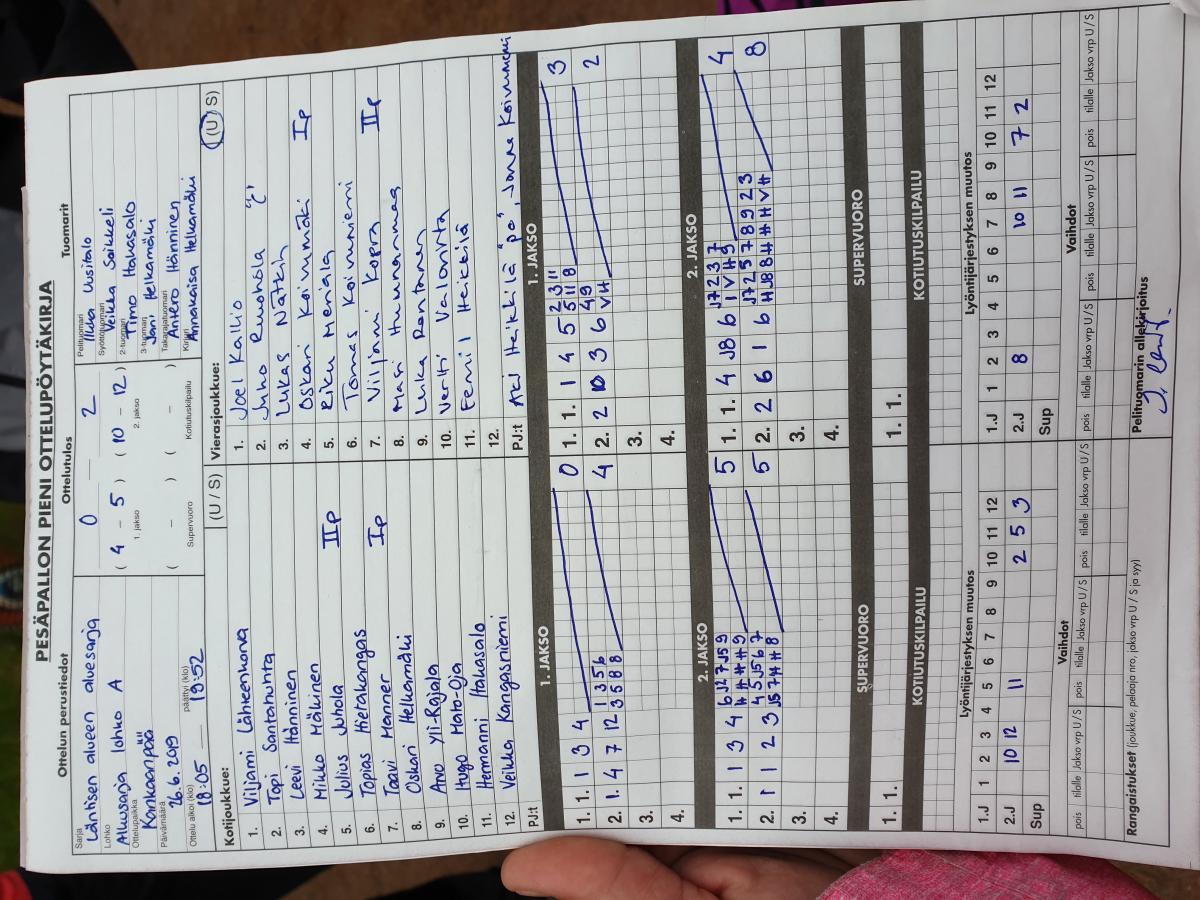 PESÄPALLON PIENI OTTELUPÖYTÄKIRJA
Ottelun perustiedot
Sarja
Läntisen alueen aluesarja
Lohko
Alkusarja lohko A
Ottelupaikka
Kankaanpää
Päivämäärä
26.6.2019
Ottelu alkoi (klo) päättyi (klo)
18:05 19:52
Ottelutulos
0 2
( 4 - 5 ) ( 10 - 12 )
1. jakso 2. jakso
( - ) ( - )
Supervuoro Kotiutuskilpailu
Tuomarit
Pelituomari
Ilkka Uusitalo
Syöttötuomari
Veikka Soikkeli
2-tuomari
Timo Hakasalo
3-tuomari
Jani Helkamäki
Takarajatuomari
Antero Hänninen
Kirjuri
Annakaisa Helkamäki
Kotijoukkue: (U / S)
1. Viljami Lähteenkorva
2. Topi Santahuhta
3. Leevi Hänninen
4. Mikko Mäkinen
5. Julius Juhola IIp
6. Topias Hietakangas
7. Taavi Manner Ip
8. Oskari Helkamäki
9. Arvo Yli-Rajala
10. Hugo Mato-Oja
11. Hermanni Hakasalo
12. Veikka Kangasniemi
PJ:t
Vierasjoukkue: (U / S)
1. Joel Kallio
2. Juho Ruohola "C"
3. Lukas Nätkin
4. Oskari Koivumäki Ip
5. Riku Meriala
6. Tomas Koivuniemi
7. Viljami Kopra IIp
8. Masi Hunnanmaa
9. Luka Rantanen
10. Vertti Valorinta
11. Eemil Heikkilä
12.
PJ:t Aki Heikkilä "po", Janne Koivuniemi
1. JAKSO
1. 1. 1 3 4 0
2. 1. 4 7 12 1 3 5 6 4
3 5 8 8
3.
4.
1. JAKSO
1. 1. 1 4 5 2 3 11 3
5 11 8
2. 2 10 3 6 4 9 2
V H
3.
4.
2. JAKSO
1. 1. 1 3 4 6 J2 7 J5 9 5
H H H H 9
2. 1 1 2 3 4 5 J5 6 7 5
J5 7 H H 8
3.
4.
2. JAKSO
1. 1. 4 J8 6 J7 2 3 7 4
1 V H 9
2. 2 6 1 6 J7 2 5 7 8 9 2 3 8
H J8 8 H H H V H
3.
4.
SUPERVUORO
1. 1.
SUPERVUORO
1. 1.
KOTIUTUSKILPAILU
KOTIUTUSKILPAILU
Lyöntijärjestyksen muutos
1.J 1 2 3 4 5 6 7 8 9 10 11 12
2.J 10 12 11 2 5 3
Sup
Lyöntijärjestyksen muutos
1.J 1 2 3 4 5 6 7 8 9 10 11 12
2.J 8 10 11 7 2
Sup
Vaihdot
pois tilalle Jakso vrp U / S pois tilalle Jakso vrp U / S pois tilalle Jakso vrp U / S
Vaihdot
pois tilalle Jakso vrp U / S pois tilalle Jakso vrp U / S pois tilalle Jakso vrp U / S
Rangaistukset (joukkue, pelaaja nro, jakso vrp U / S ja syy)
Pelituomarin allekirjoitus